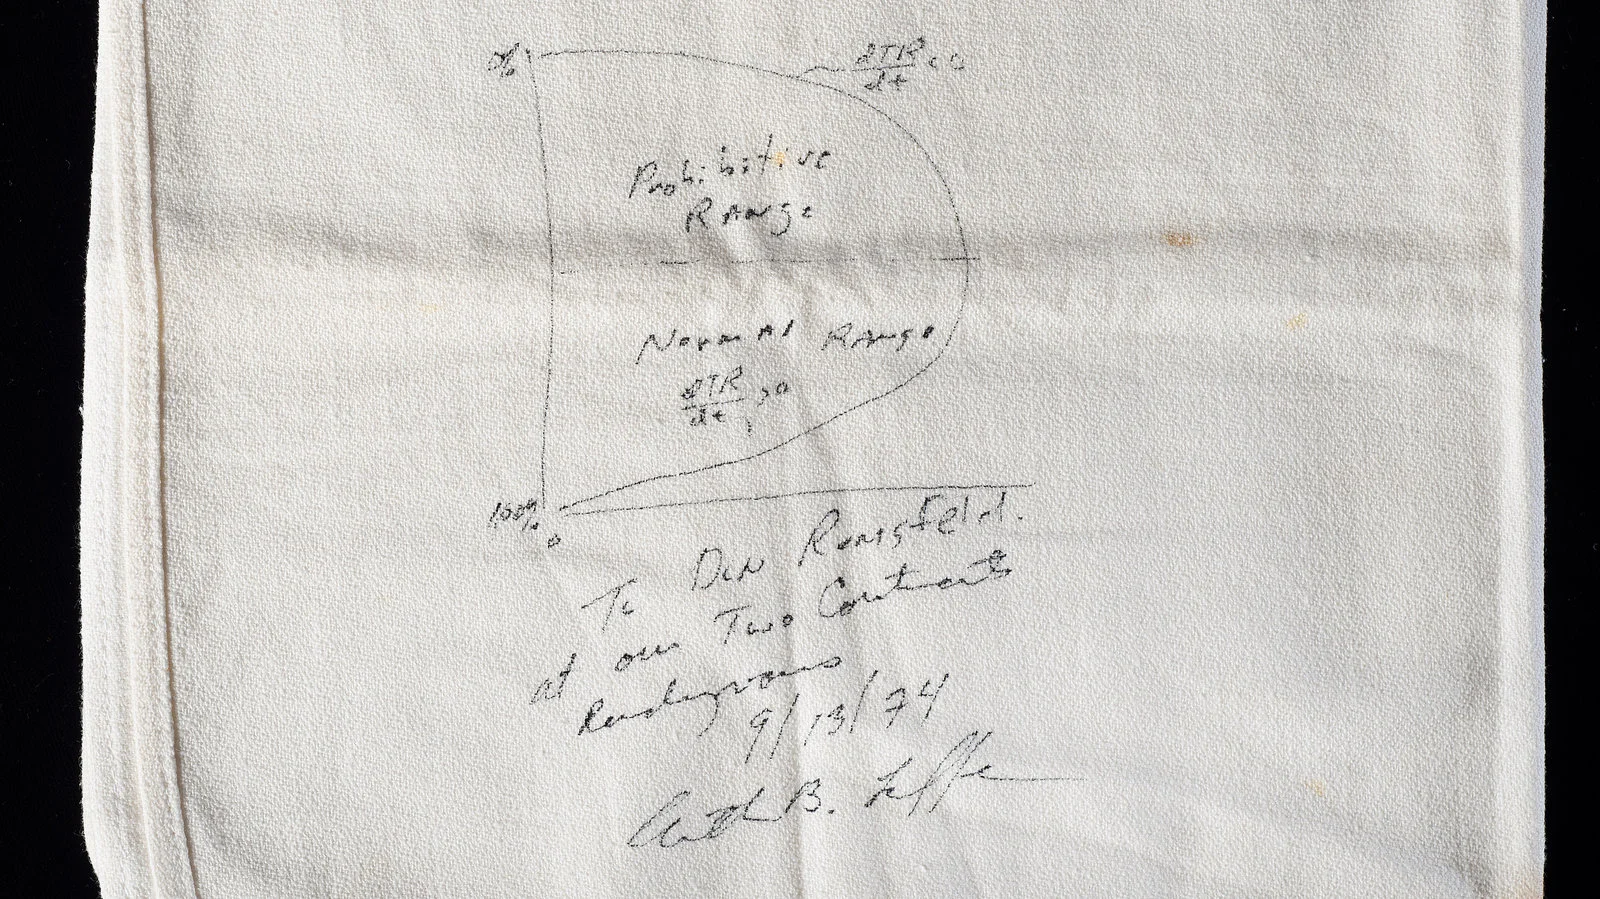 0%
dTR/dt < 0
Prohibitive
Range
Normal Range
dTR/dt > 0
100%
0
To Don Rumsfeld.
at our Two Continents
Rendezvous
9/13/74
Arthur B. Laffer